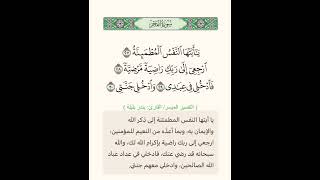 سورة الفجر
يَٰٓأَيَّتُهَا ٱلنَّفۡسُ ٱلۡمُطۡمَئِنَّةُ ٢٧
ٱرۡجِعِيٓ إِلَىٰ رَبِّكِ رَاضِيَةٗ مَّرۡضِيَّةٗ ٢٨
فَٱدۡخُلِي فِي عِبَٰدِي ٢٩ وَٱدۡخُلِي جَنَّتِي ٣٠
( التفسير الميسر/ القارئ: بندر بليلة )
يا أيتها النفس المطمئنة إلى ذكر الله
والإيمان به، وبما أعدَّه من النعيم للمؤمنين،
ارجعي إلى ربك راضية بإكرام الله لك، والله
سبحانه قد رضي عنك، فادخلي في عداد عباد
الله الصالحين، وادخلي معهم جنتي.